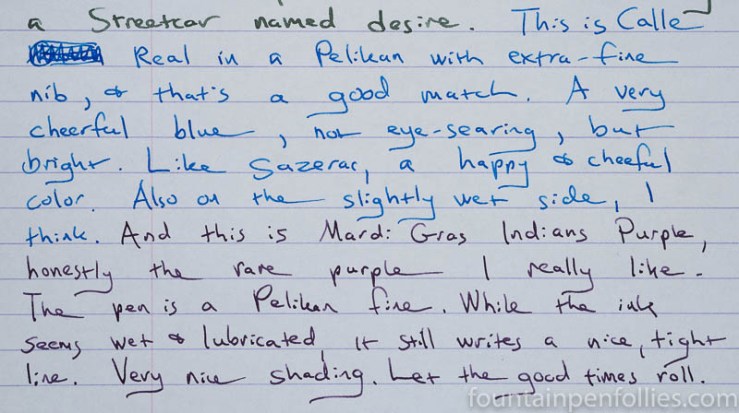 a Streetcar named desire. This is Calle
Real in a Pelikan with extra-fine
nib, & that's a good match. A very
cheerful blue, not eye-searing, but
bright. Like Sazerac, a happy & cheeful
color. Also on the slightly wet side, I
think. And this is Mardi Gras Indians Purple,
honestly the rare purple I really like.
The pen is a Pelikan fine. While the ink
seems wet & lubricated, it still writes a nice, tight
line. Very nice shading. Let the good times roll.
fountainpenfollies.com